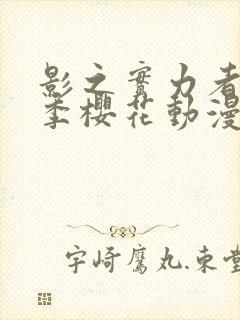 影之實力者
季櫻花動漫
宇崎鷹丸.東堂